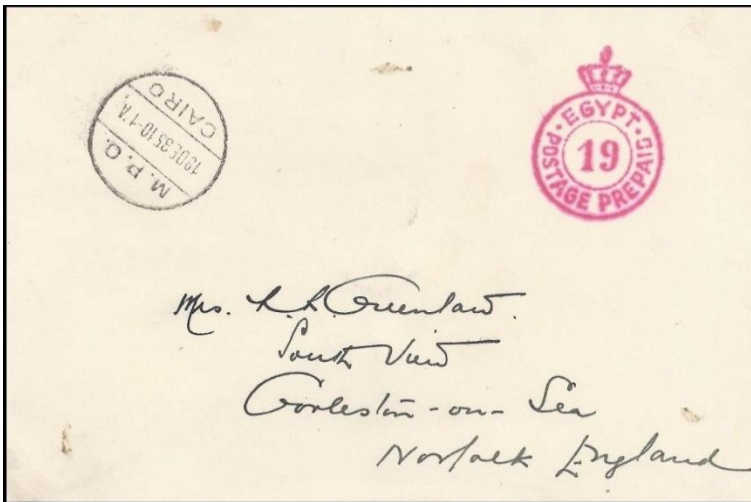 M.P.O.
18DE3510-11A
CAIRO
EGYPT
19
POSTAGE PREPAID
Mrs. L. L. Greenlaw.
South View
Gorleston-on-Sea
Norfolk England